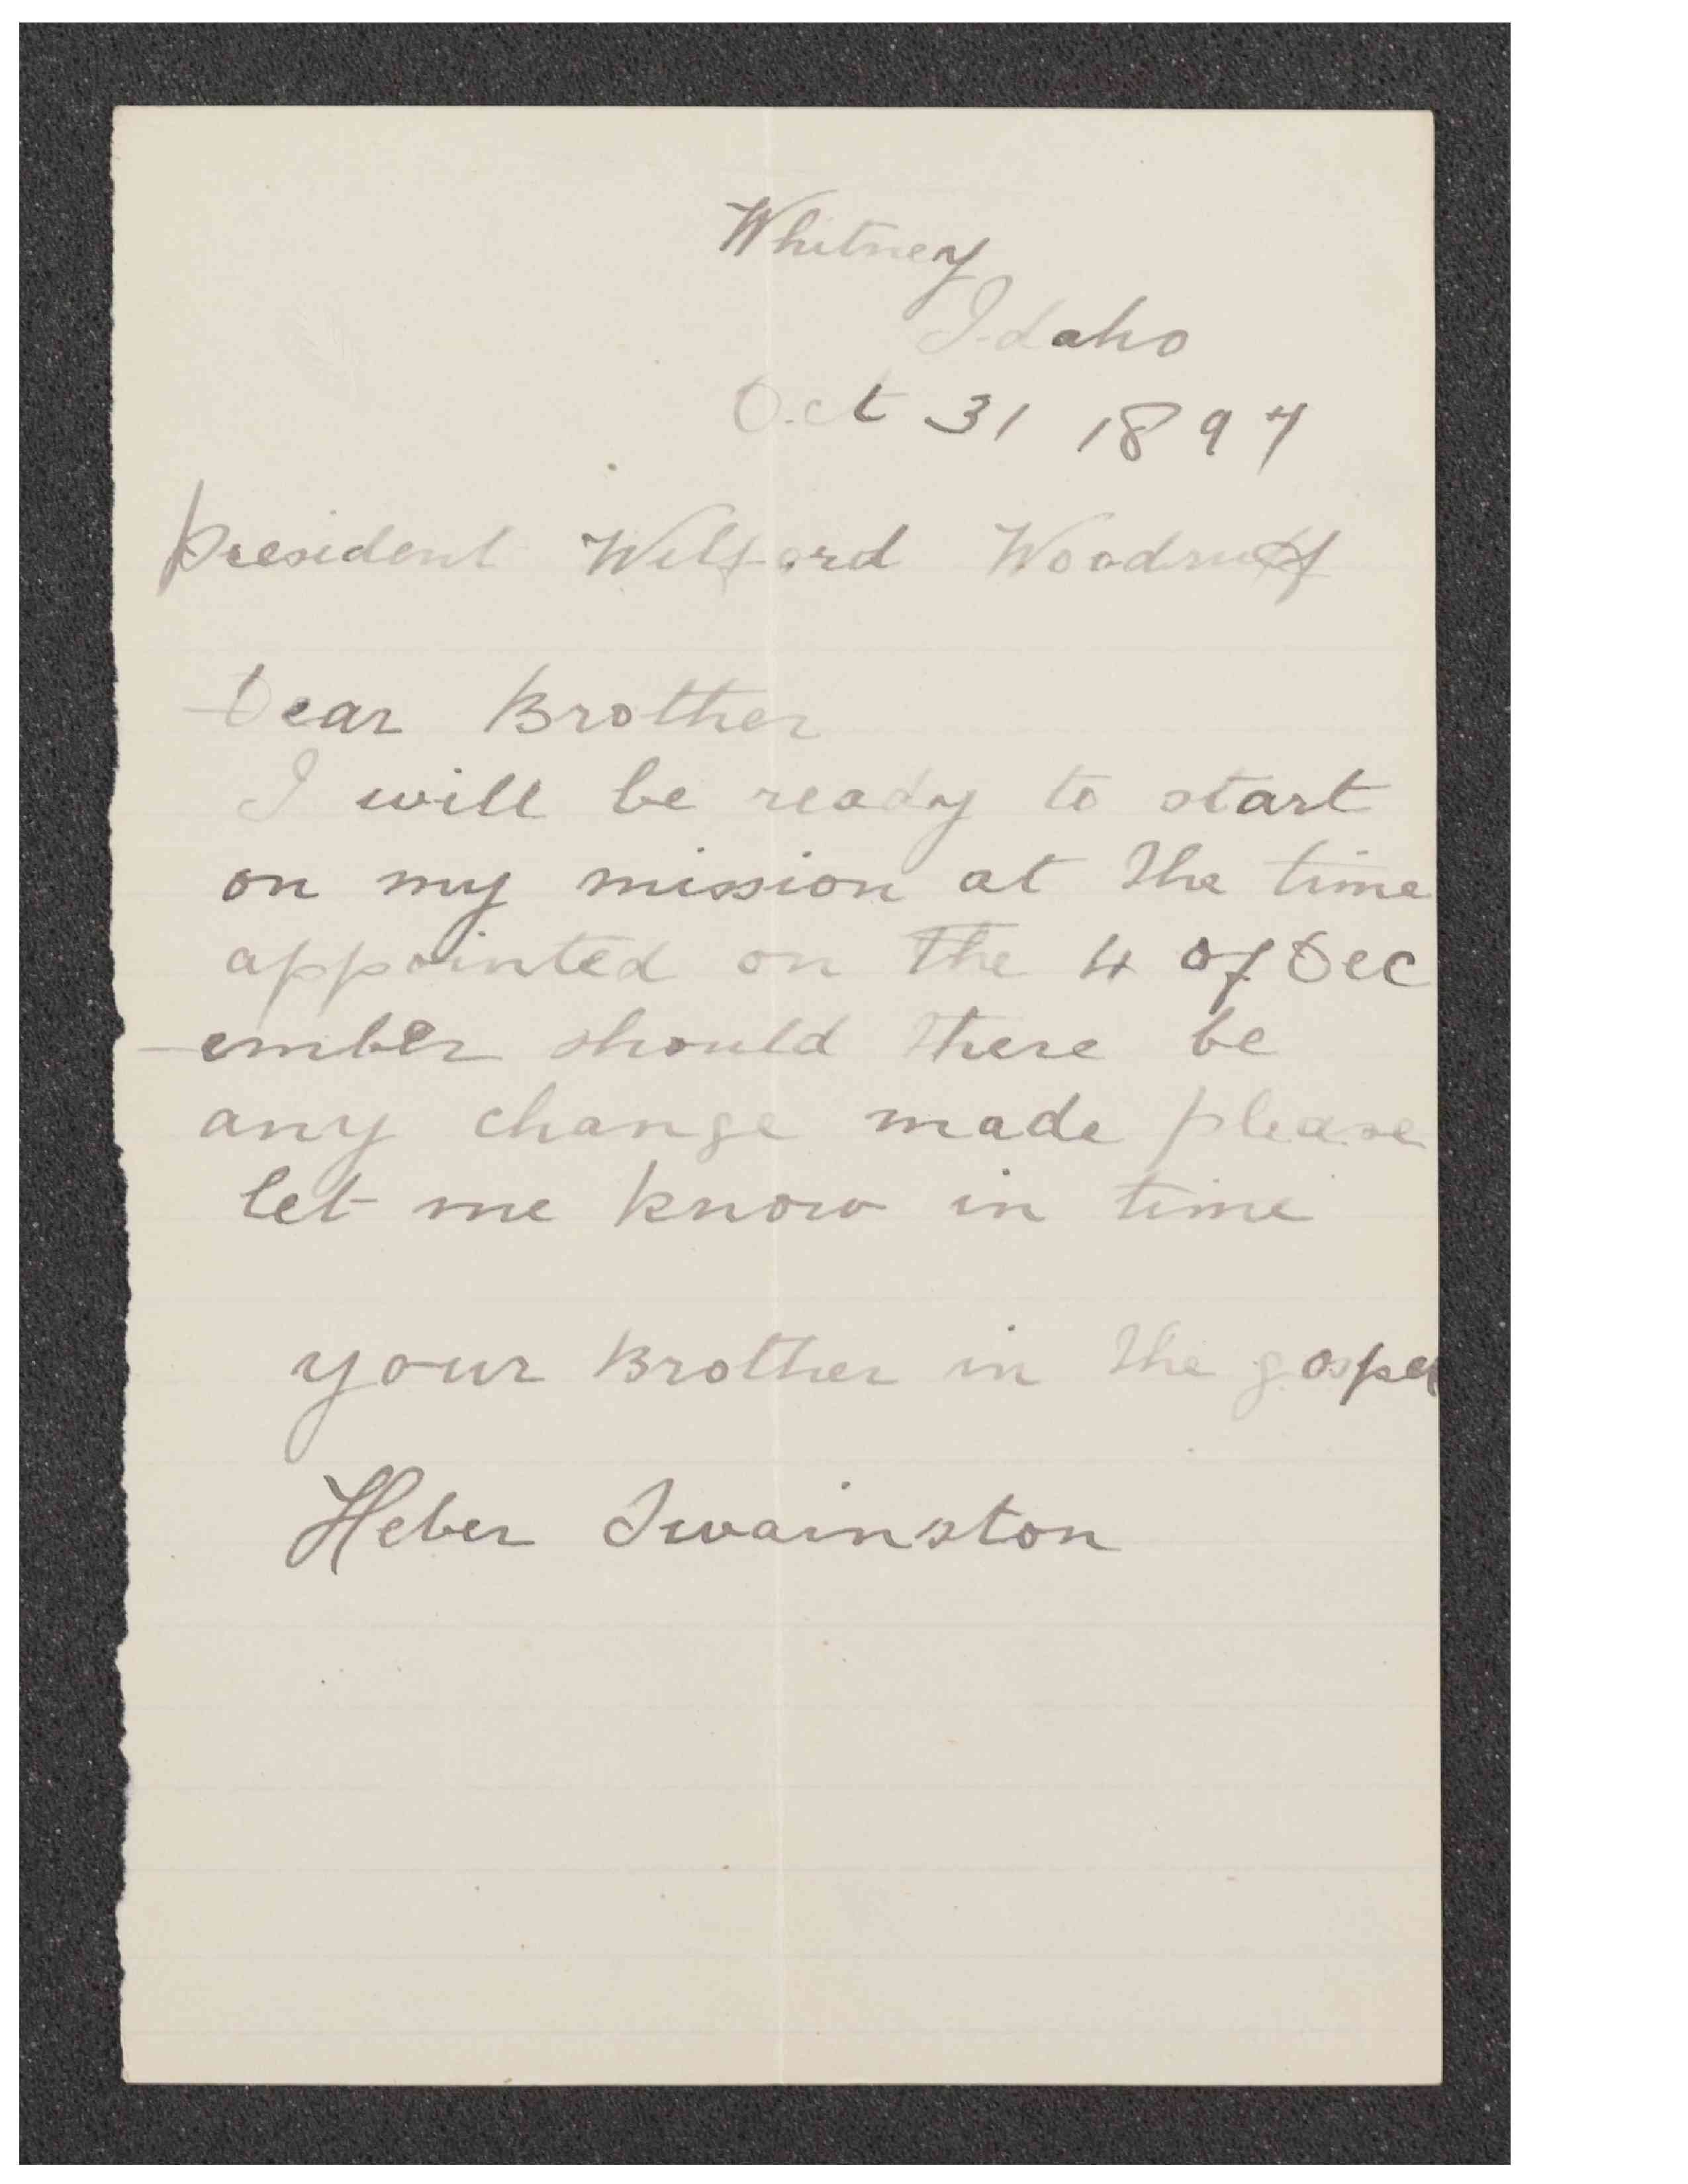 Whitney
Idaho
Oct 31 1897
President Wilford Woodruff
Dear Brother
I will be ready to start
on my mission at the time
appointed on the 4 of Dec
-ember should there be
any change made please
let me know in time
your Brother in the gospel
Heber Swainston